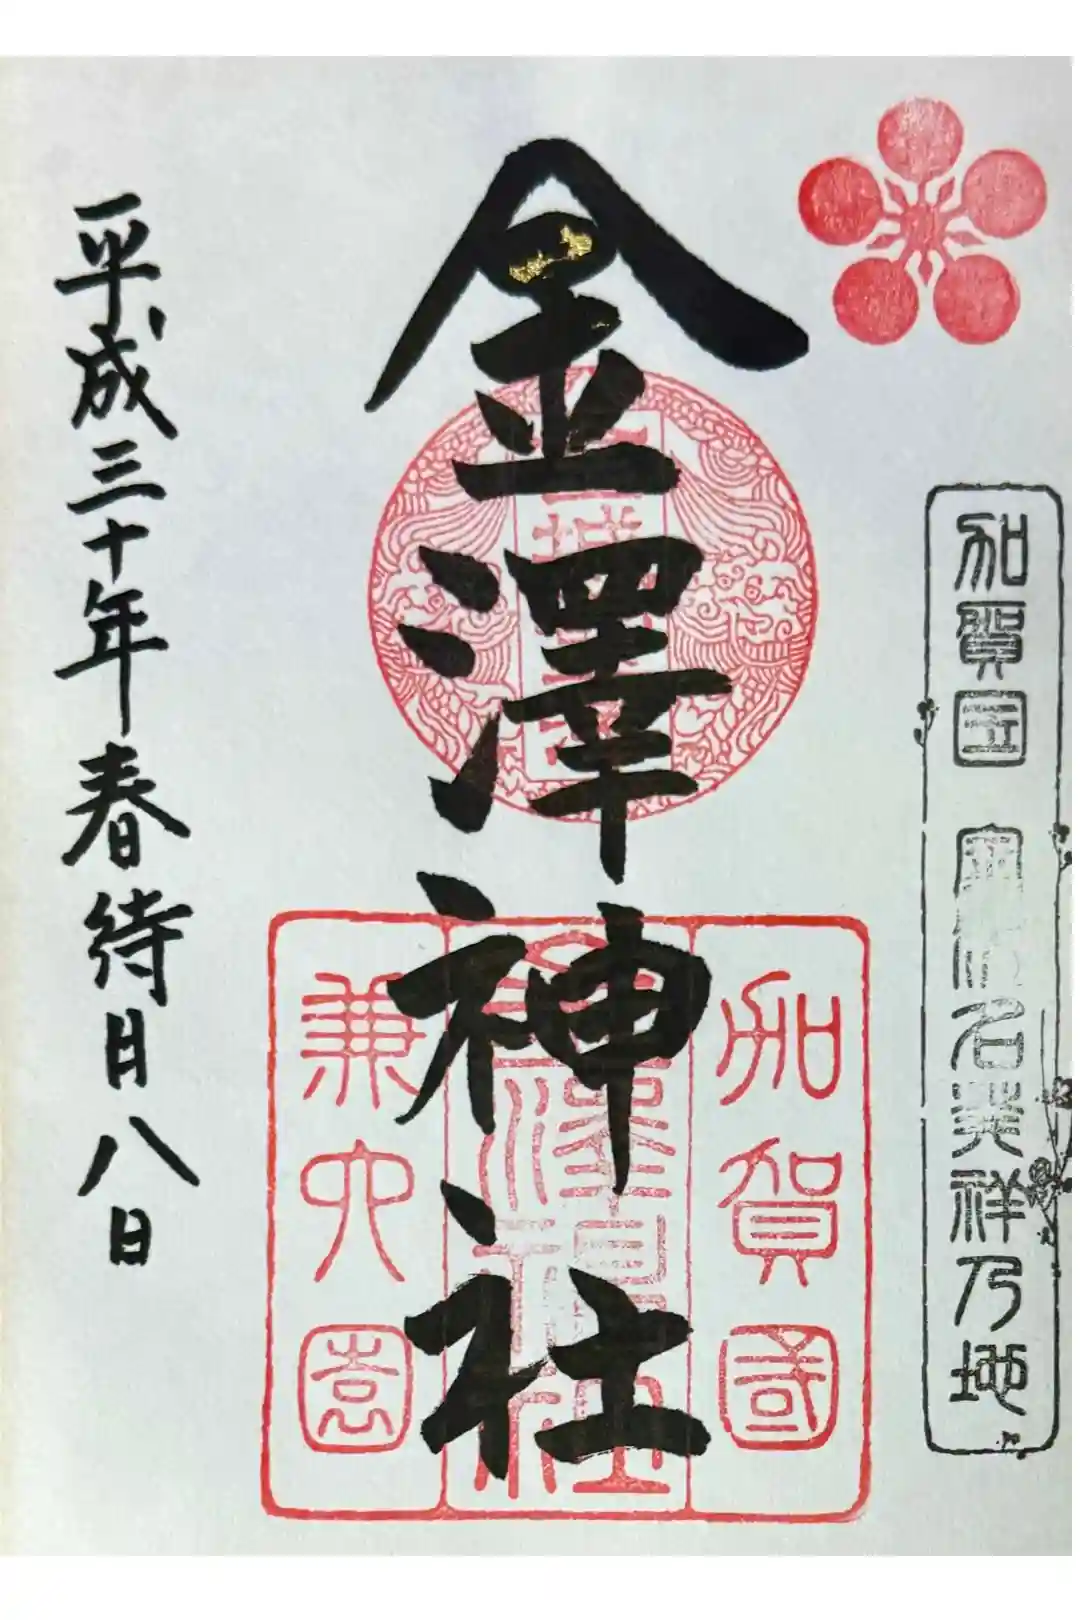 加賀国 金沢名発祥乃地
金澤神社
加賀國
金澤神社
兼六園
平成三十年春待月八日